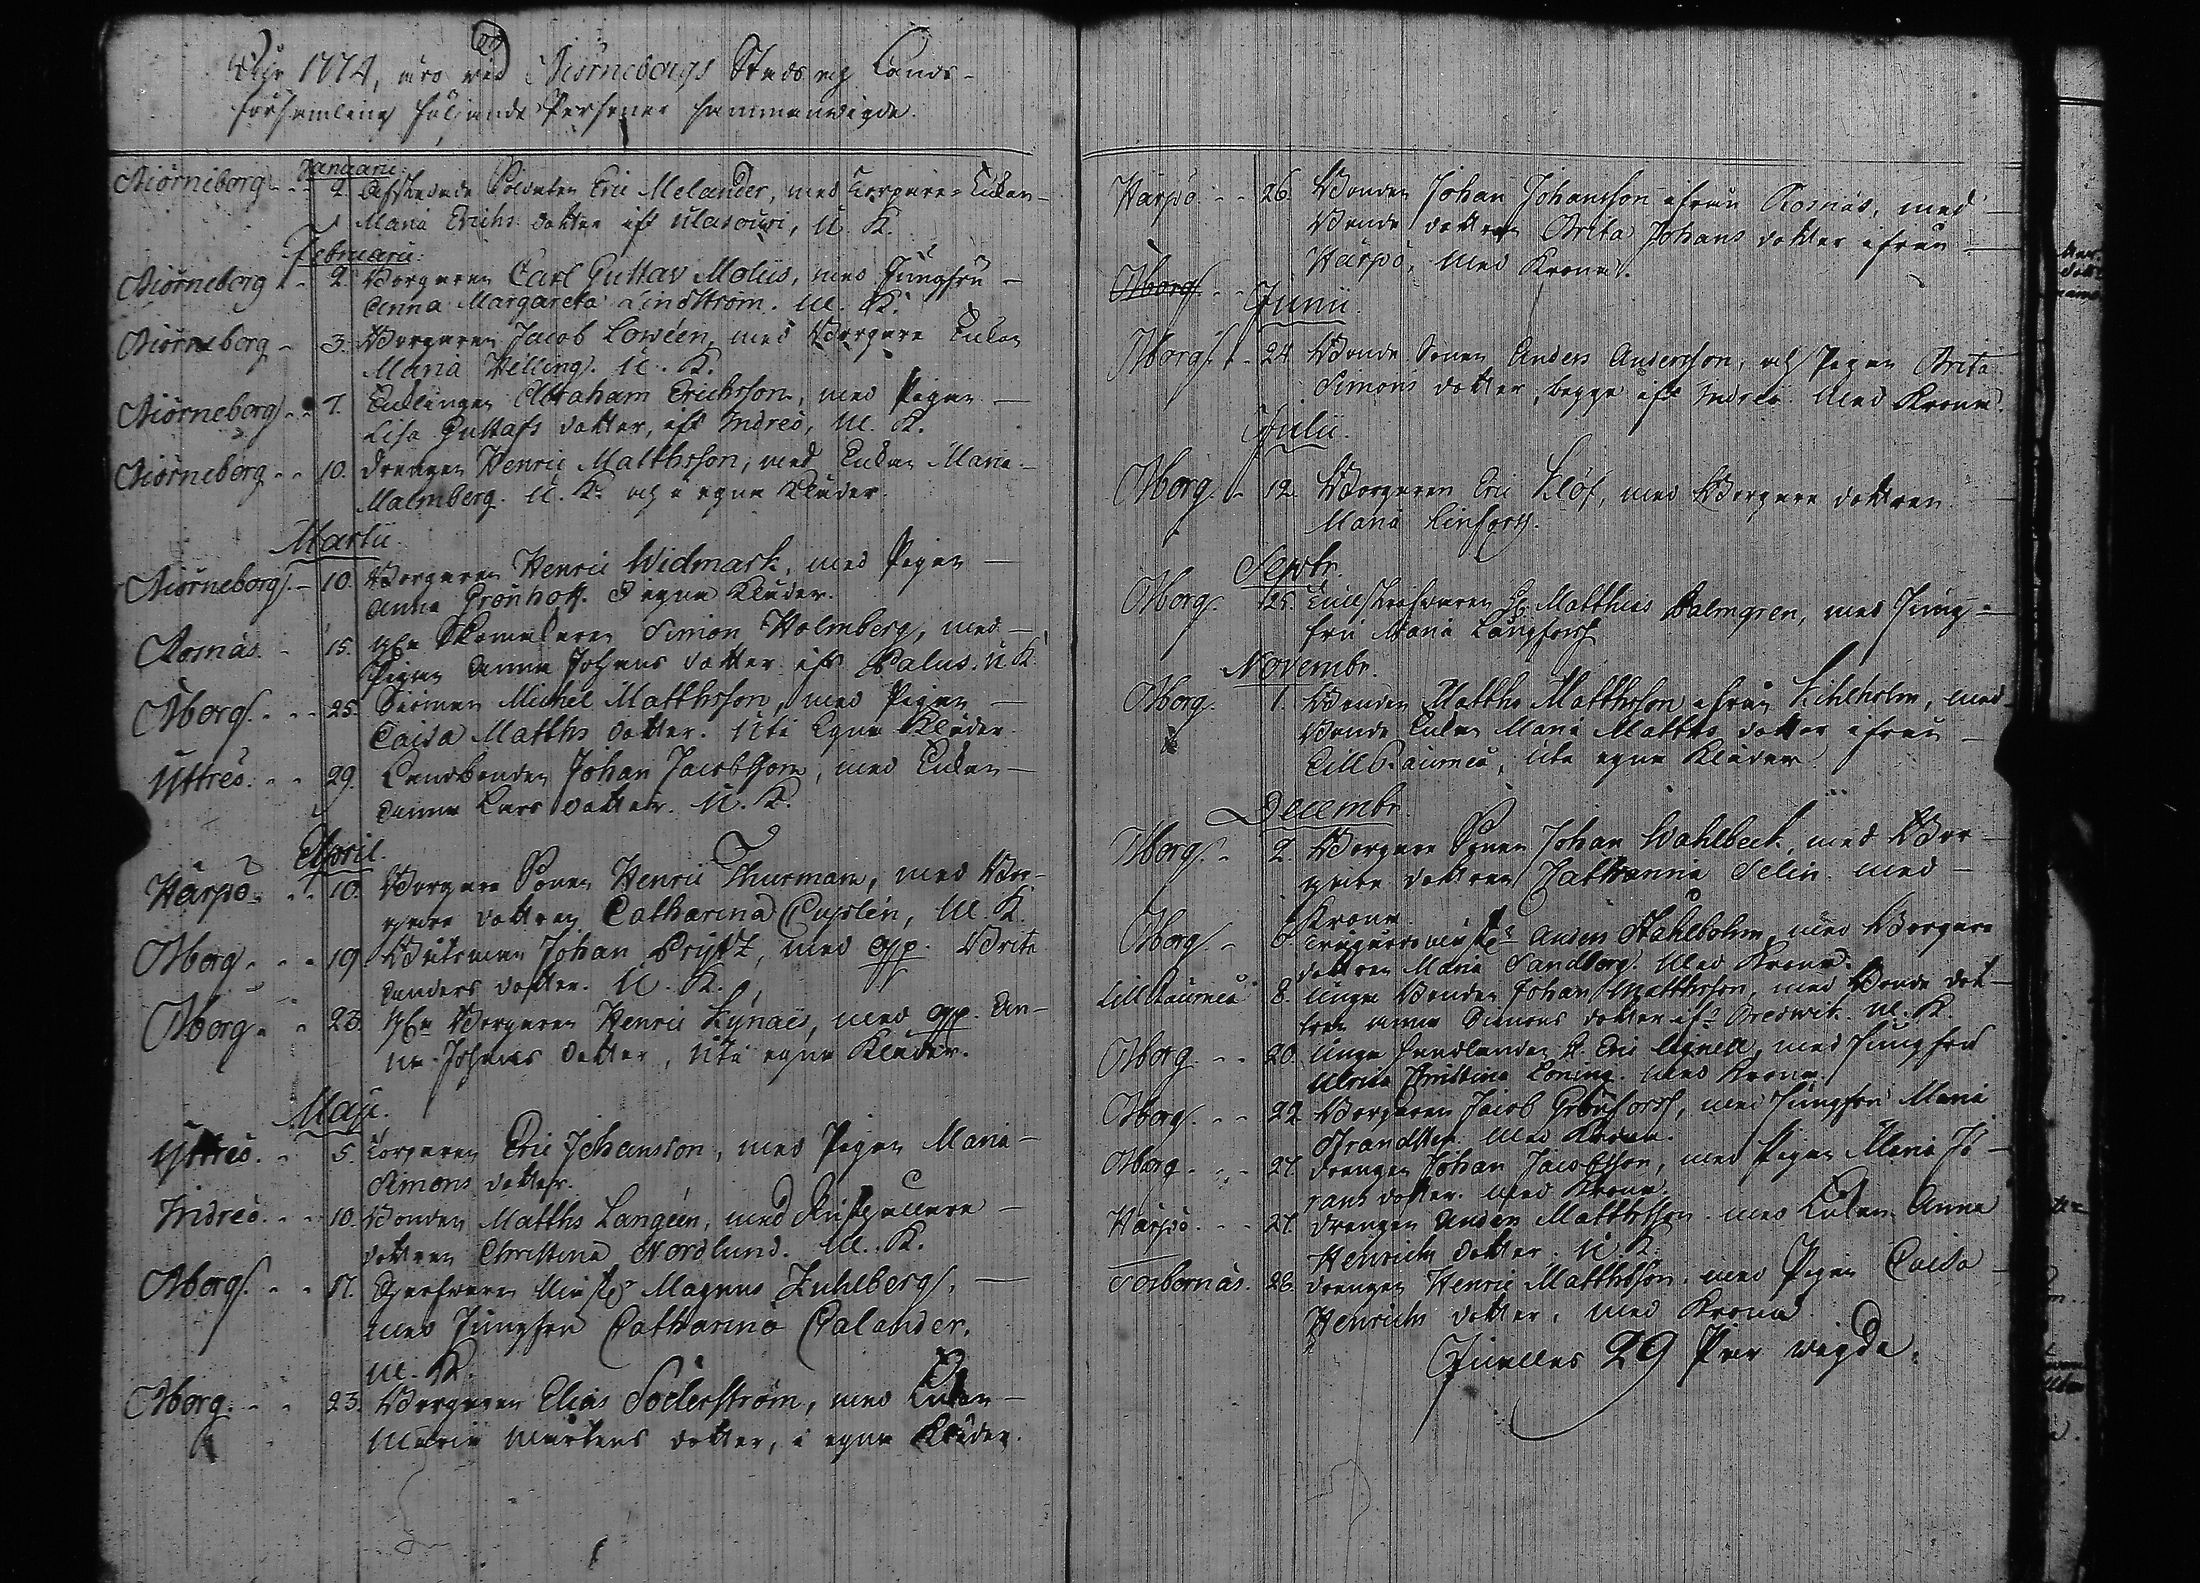 Åhr 1774, äro wid Biörneborgs Stads och Lands-
församling följande Personer sammanwigde.
Januarii.
Biörneborg - - 2. Afskedade Soldaten Eric Melander, med Torpare Enkan
Maria Erichs dotter ifr , U. K.
Februarii.
Biörneborg - 2. Borgaren Carl Gustav Molus, med Jungfru
Anna Margareta Lindström. M. K.
Biörneborg - 3. Borgaren Jacob Lowéen, med Borgare Enkan
Maria Helling. U. K.
Biörneborg - - 7. Enklingen Abraham Erichsson, med Pigan
Lisa Gustafs dotter, ifr Indreö, M. K.
Biörneborg - - 10. Drengen Henric Matthsson, med Enkan Maria
Malmberg. U. K. och i egna Kläder.
Martii.
Biörneborg. - 10. Borgaren Henric Widmark, med Pigan
Anna Grönhoff. I egna Kläder.
Rosnäs. - 15. Simon Holmberg, med
Pigan Anna Johans dotter ifr Palus. U. K.
Bborg. - - 25. Michel Matthsson, med Pigan
Caisa Matths dotter. Uti Egna Kläder.
Yttreö. - - 29. Landbonden Johan Jacobsson, med Enkan
Anna Lars dotter. U. K.
April.
Härpö. - - 10. Borgare Sonen Henric Thurman, med Bor-
gare dottren Catharina Cupslén, M. K.
Bborg - - - 19. Båtsman Johan Brijtz, med qp. Brita
Anders dotter. U. K.
Bborg. - - 23. Borgaren Henric Kÿnäes, med qp. An-
na Johans dotter, Uti egna Kläder.
Maji.
Yttreö. - 5. Torparen Eric Johansson, med Pigan Maria
Simons dotter.
Indreö. - - 10. Bonden Matths Langéen, med
dottren Christina Nordlund. M. K.
Bborg. - - 17. Magnus Kuhlberg,
med Jungfru Catharina Calander.
M. K.
Bborg. - - 23. Borgaren Elias Söderström, med Enkan
Maria Mårtens dotter, i egna Kläder.
Härpö - - 26. Bonden Johan Johansson ifrån Rosnäs, med
Bonde dottren Brita Johans dotter ifrån
Härpö, Med Krona.
Bborg - -
Junii.
Bborg. - 24. Bonde Sonen Anders Andersson, och Pigan Brita
Simons dotter, begge ifr Indreö Med Krona.
Julii.
Bborg. - 12. Borgaren Eric Klöf, med Borgare dottren
Maria Linforss.
Septbr.
Bborg. 25. Matthias Palmgren, med Jung-
fru Maria Långforss
Novembr.
Bborg. 1. Bonden Matths Matthsson ifrån Kihlholm, med
Bonde Enkan Maria Matths dotter ifrån
Lill Raumea, Uti egna Kläder.
Decembr.
Bborg. - 2. Borgare Sonen Johan Wahlbeck, med Bor-
gare dottren Catharina Selin. med
Krona.
Bborg - 6. Anders Stahlbohm, med Borgare
dottren Maria Sandberg. Med Krona.
Lill Raumea 8. Unga Bonden Johan Matthsson, med Bonde dot-
tren Anna Simons dotter ifr Bredwik. M. K.
Bborg. - - 20. Unga Handlanden Hr Eric Agnell, med Jungfru
Ulrica Christina Boning. Med Krona.
Bborg. - - 22. Borgaren Jacob Grönforss, med Jungfru Maria
Strandsten. Med Krona.
Bborg. - - 27. Drengen Johan Jacobsson, med Pigan Maria Jö-
rans dotter. Med Krona.
Härpö. - - 27. Drengen Anders Matthsson. med Enkan Anna
Henrichs dotter. U. K.
Torbernäs. 28. Drengen Henric Matthsson. med Pigan Caisa
Henrichs dotter, med Krona
29 Par wigda.